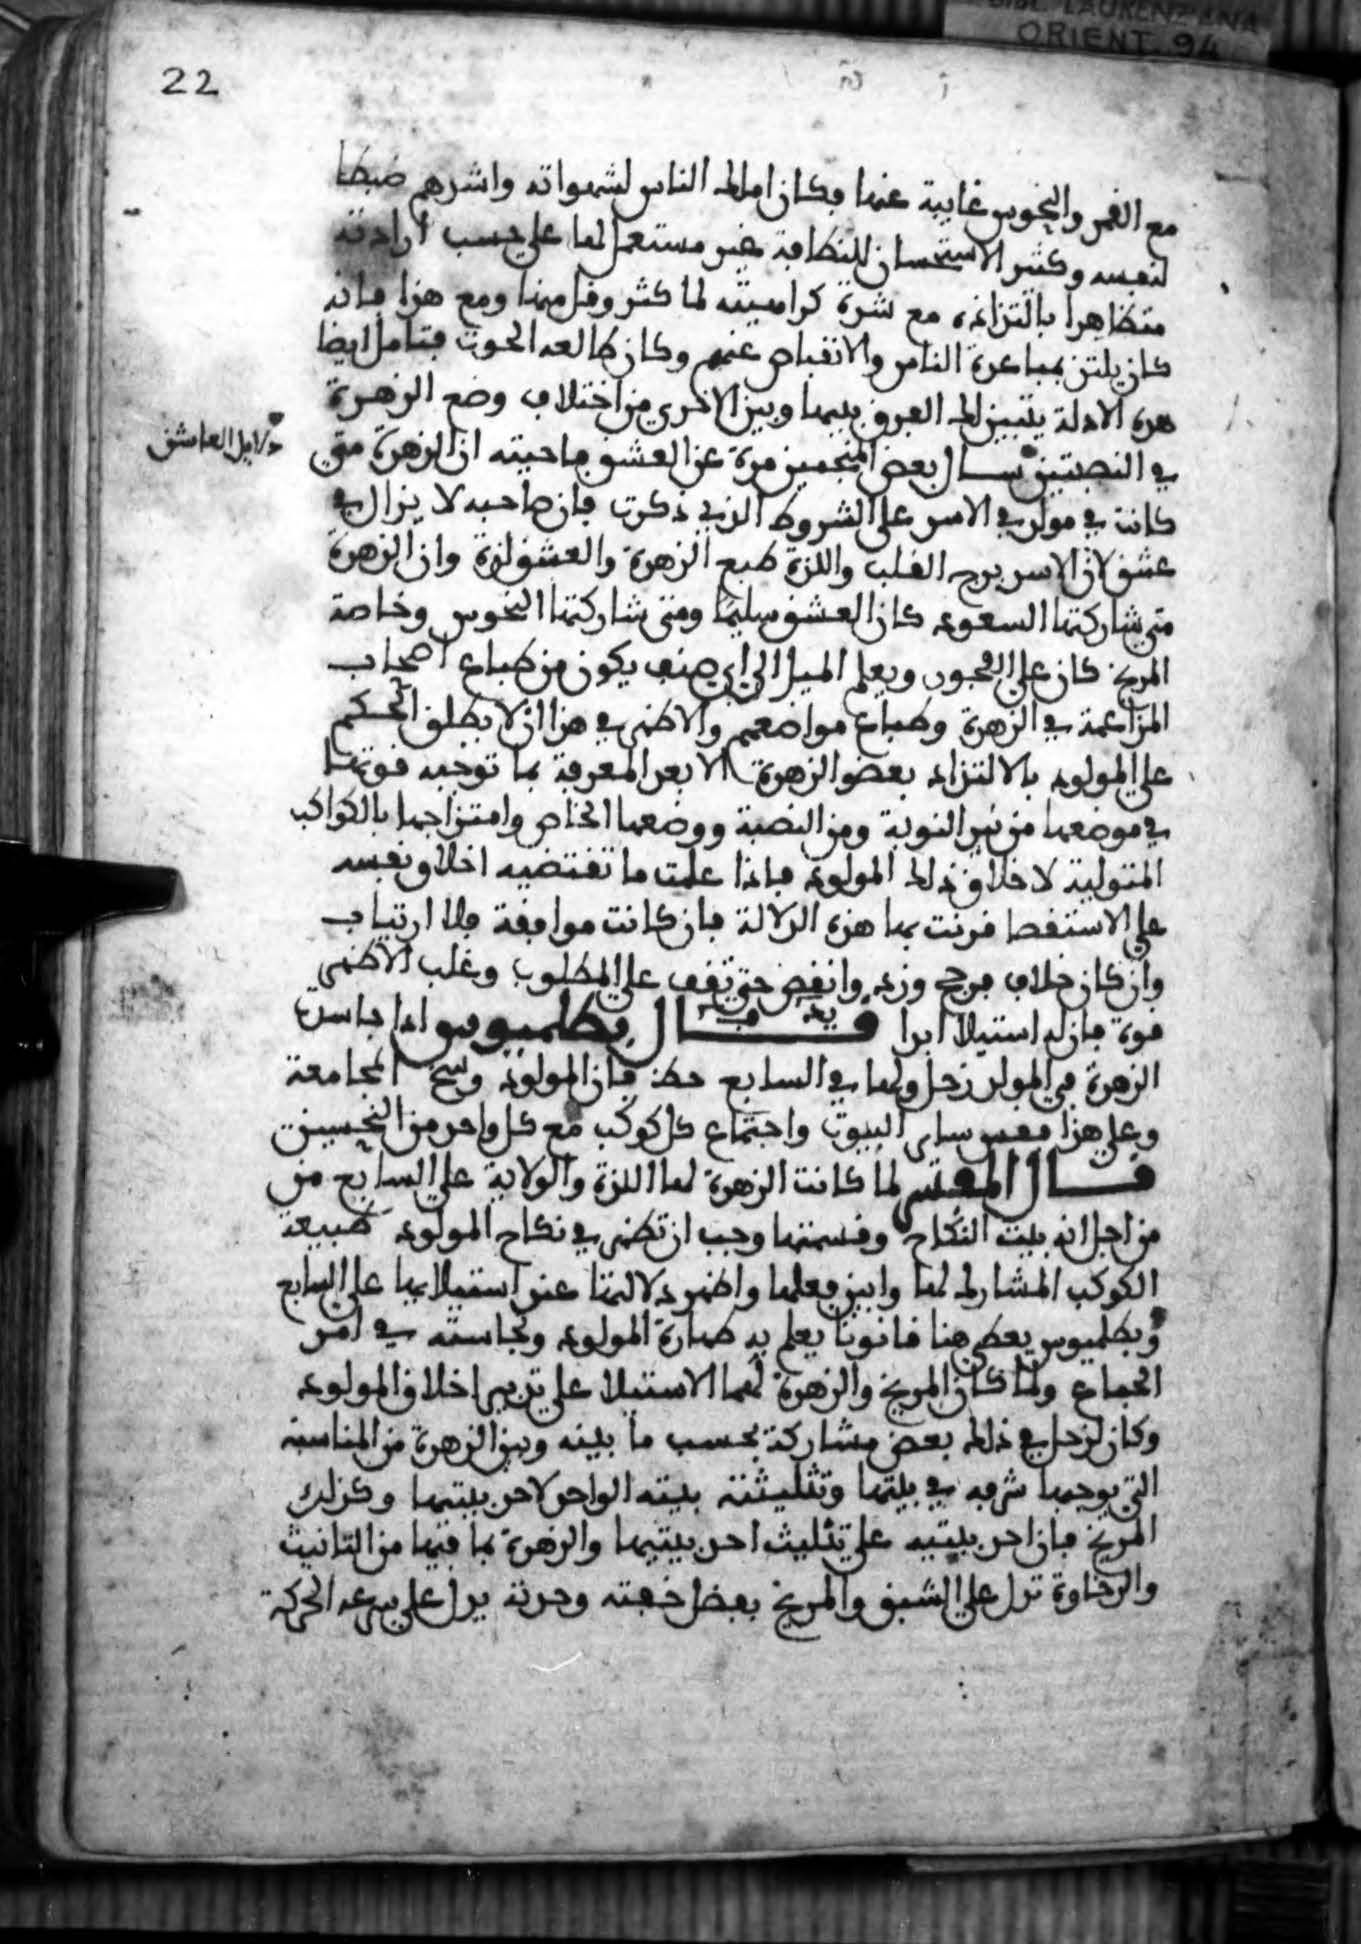 BIBL. LAURENZIANA
ORIENT. 94
22
مع القمر والنحوس غايبة عنها وكان املك الناس لشهواته واشدهم ضبطا
لنفسه وكثير الاستحسان للنظافة غير مستعمل لها على حسب ارادته
متظاهرا بالتزاند مع شدة كراهيته لما كثر وقل منها ومع هذا فانه
كان يلتذ بمباعدة الناس والانقباض عنهم وكان طالعه الحوت فتامل ايضا
هذه الادلة يتبين لك الفروق بينها وبين الاخرى من اختلاف وضع الزهرة
في النصبتين سال بعض المنجمين مرة عن العشق فاجبته ان الزهرة متى
دلايل العاشق
كانت في مولد في الاسد على الشروط الذي ذكرت فان صاحبه لا يزال في
عشق لان الاسد برج القلب واللذة طبع الزهرة والعشق لذة وان الزهرة
متى شاركتها السعود كان العشق سليما ومتى شاركتها النحوس وخاصة
المريخ كان على الفجور ويعلم الميل الى اي صنف يكون من طباع اصحاب
المزاعمة في الزهرة وطباع مواضعهم والاظهر في هذا ان لا يطلق الحكم
على المولود بالالتزاد بعضو الزهرة الا بعد المعرفة بما توجبه قوتها
في موضعها من نير النوبة ومن النصبة ووضعها الخاص وامتزاجها بالكواكب
المتولية لاخلاق ذلك المولود فاذا علمت ما تقتضيه اخلاق نفسه
على الاستقصا قرنت بها هذه الدلالة فان كانت موافقة فلا ارتياب
وان كان خلاف فرجح وزد وانقص حتى تقف على المطلوب وغلب الاظهر
قوة فان له استيلا ابدا قال بطلميوس اذا جاسدت
الزهرة في المولد زحل ولها في السابع حظ فان المولود وسخ المجامعة
وعلى هذا فقس ساير البيوت واجتماع كل كوكب مع كل واحد من النحسين
قال المفسر لما كانت الزهرة لها اللذة والولاية على السابع من
من اجل انه بيت النكاح وقسمتها وجب ان تظهر في نكاح المولود طبيعة
الكوكب المشارك لها وابين فعلها واظهر دلالتها عند استيلايها على السابع
وبطلميوس يعطي هنا قانونا يعلم به طهارة المولود ونجاسته في امر
الجماع ولما كان المريخ والزهرة لهما الاستيلا على تدبير اخلاق المولود
وكان لزحل في ذلك بعض مشاركة بحسب ما بينه وبين الزهرة من المناسبة
التي يوجبها شرفه في بيتها وتثليثته بيته الواحد لاحد بيتيها وكذلك
المريخ فان احد بيتيه على تثليث احد بيتيها والزهرة بما فيها من التانيث
والرخاوة تدل على الشبق والمريخ بفضل خفته وحدته يدل على سرعة الحركة